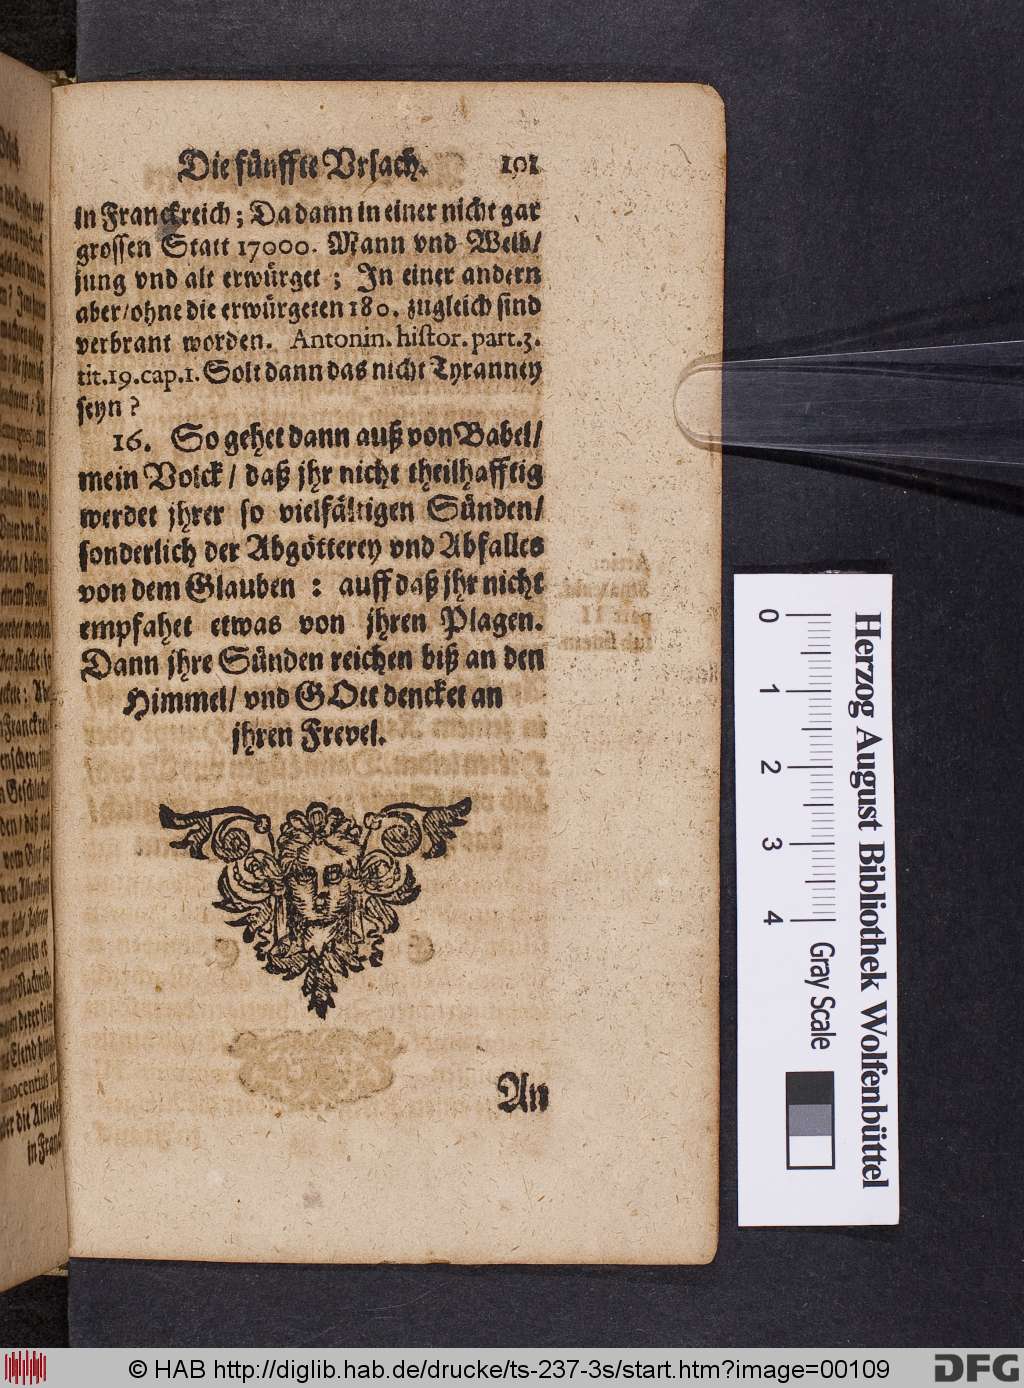 Die fünffte Vrsach. 101
in Franckreich; Da dann in einer nicht gar
grossen Statt 17000. Mann vnd Weib/
jung vnd alt erwürget; In einer andern
aber/ohne die erwürgeten 180. zugleich sind
verbrant worden. Antonin. histor. part. 3.
tit. 19. cap. 1. Solt dann das nicht Tyranney
seyn?
16. So gehet dann auß von Babel/
mein Volck/ daß jhr nicht theilhafftig
werdet jhrer so vielfältigen Sünden/
sonderlich der Abgötterey vnd Abfalles
von dem Glauben: auff daß jhr nicht
empfahet etwas von jhren Plagen.
Dann jhre Sünden reichen biß an den
Himmel/ vnd GOtt dencket an
jhren Frevel.
An
Herzog August Bibliothek Wolfenbüttel
0 1 2 3 4 Gray Scale
© HAB http://diglib.hab.de/drucke/ts-237-3s/start.htm?image=00109
DFG